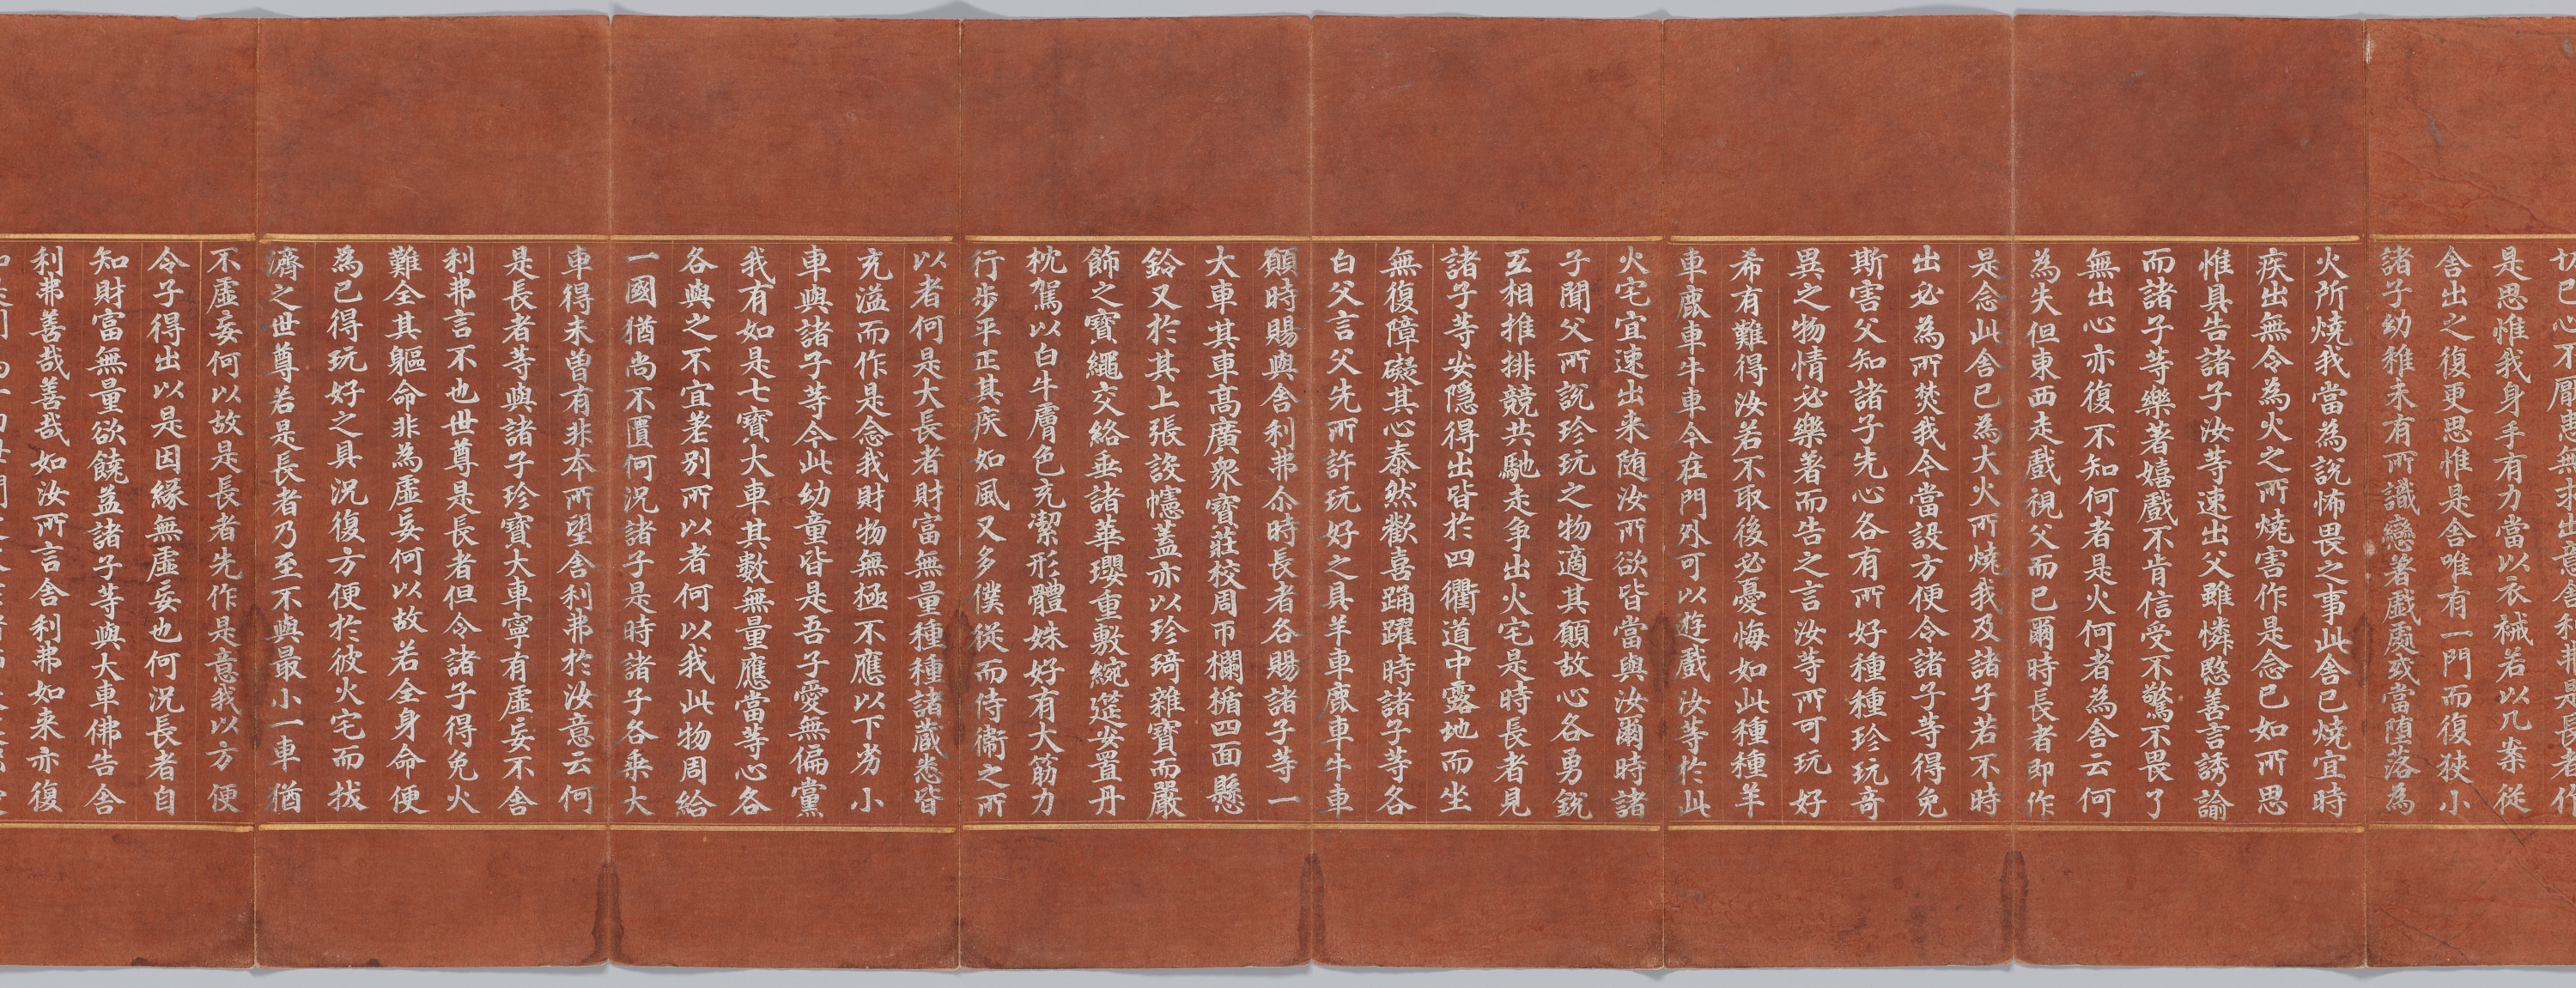 切已心不厭患無求出意舍利弗是長者作
是思惟我身手有力當以衣裓若以几案從
舍出之復更思惟是舍唯有一門而復狹小
諸子幼稚未有所識戀著戲處或當墮落為
火所燒我當為說怖畏之事此舍已燒宜時
疾出無令為火之所燒害作是念已如所思
惟具告諸子汝等速出父雖憐愍善言誘諭
而諸子等樂著嬉戲不肯信受不驚不畏了
無出心亦復不知何者是火何者為舍云何
為失但東西走戲視父而已爾時長者即作
是念此舍已為大火所燒我及諸子若不時
出必為所焚我今當設方便令諸子等得免
斯害父知諸子先心各有所好種種珍玩奇
異之物情必樂著而告之言汝等所可玩好
希有難得汝若不取後必憂悔如此種種羊
車鹿車牛車今在門外可以遊戲汝等於此
火宅宜速出来随汝所欲皆當與汝爾時諸
子聞父所說珍玩之物適其願故心各勇銳
互相推排競共馳走争出火宅是時長者見
諸子等安隱得出皆於四衢道中露地而坐
無復障礙其心泰然歡喜踊躍時諸子等各
白父言父先所許玩好之具羊車鹿車牛車
願時賜與舍利弗尒時長者各賜諸子等一
大車其車高廣衆寶莊校周帀欄楯四面懸
鈴又於其上張設幰蓋亦以珍琦雜寶而嚴
飾之寶繩交絡垂諸華瓔重敷綩筵安置丹
枕駕以白牛膚色充潔形體姝好有大筋力
行步平正其疾如風又多僕從而侍衛之所
以者何是大長者財富無量種種諸蔵悉皆
充溢而作是念我財物無極不應以下劣小
車與諸子等今此幼童皆是吾子愛無偏黨
我有如是七寶大車其數無量應當等心各
各與之不宜差別所以者何以我此物周給
一國猶尚不匱何況諸子是時諸子各乘大
車得未曾有非本所望舍利弗於汝意云何
是長者等與諸子珍寶大車寧有虛妄不舍
利弗言不也世尊是長者但令諸子得免火
難全其軀命非為虛妄何以故若全身命便
為已得玩好之具況復方便於彼火宅而拔
濟之世尊若是長者乃至不與最小一車猶
不虛妄何以故是長者先作是意我以方便
令子得出以是因緣無虛妄也何況長者自
知財富無量欲饒益諸子等與大車佛告舍
利弗善哉善哉如汝所言舍利弗如来亦復